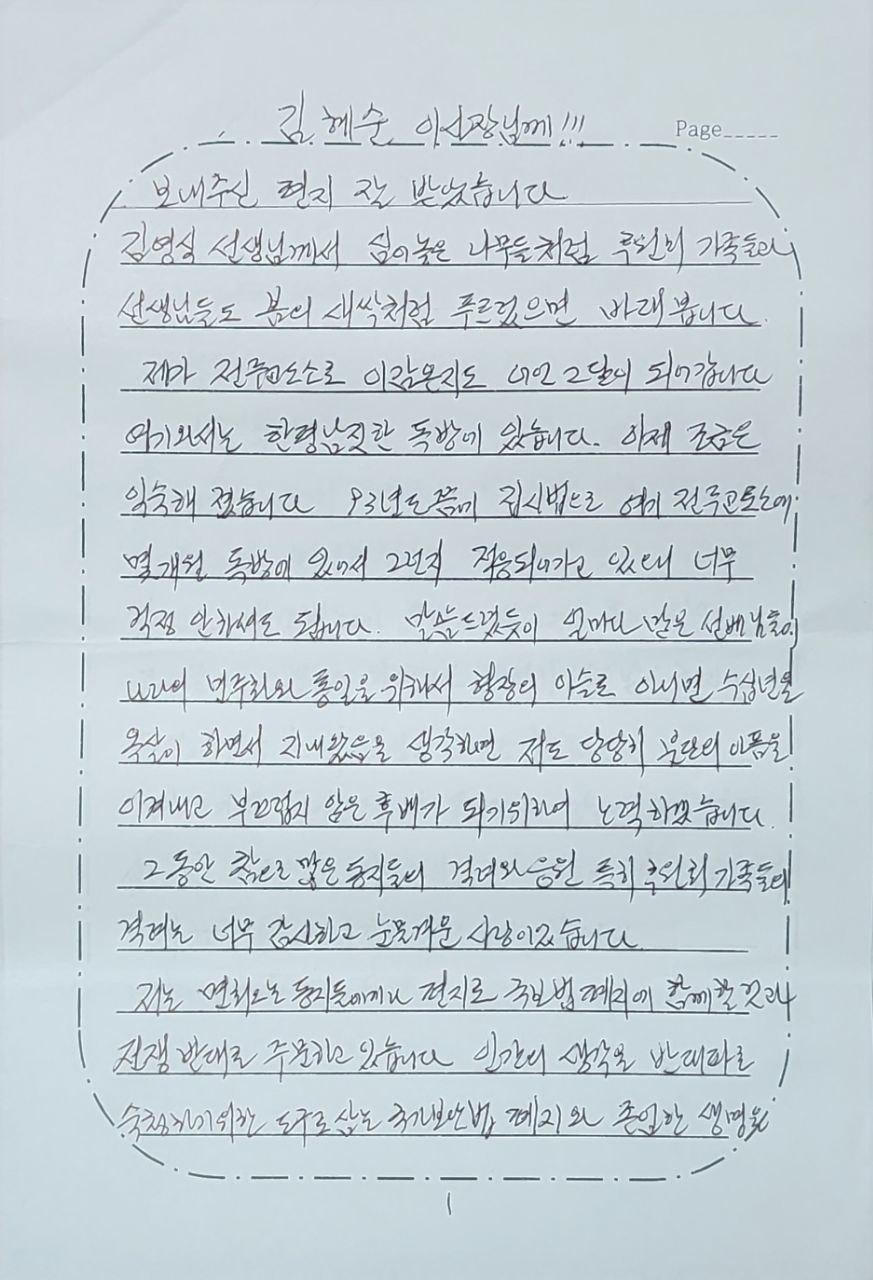 김혜순 이사장님께!!!
Page_____
보내주신 편지 잘 받았습니다
김영식 선생님께서 심어놓은 나무들처럼 후원회 가족들과
선생님들도 봄의 새싹처럼 푸르렀으면 바래봅니다.
제가 전주교도소로 이감온지도 어언 2달이 되어갑니다
여기와서는 한평남짓한 독방에 있습니다. 이제 조금은
익숙해 졌습니다 93년도쯤에 집시법으로 여기 전주교도소에
몇개월 독방에 있어서 그런지 적응되어가고 있으니 너무
걱정 안하셔도 됩니다. 말씀드렸듯이 얼마나 많은 선배님들이
나라의 민주화와 통일을 위해서 형장의 이슬로 아니면 수십년을
옥살이 하면서 지내왔음을 생각하면 저도 당당히 분단의 아픔을
이겨내고 부끄럽지 않은 후배가 되기위하여 노력하겠습니다.
그동안 참으로 많은 동지들의 격려와 응원 특히 후원회 가족들의
격려는 너무 감사하고 눈물겨운 사랑이었습니다
저는 면회오는 동지들에게나 편지로 국보법폐지에 함께할것과
전쟁반대를 주문하고 있습니다 인간의 생각을 반대파로
숙청하기위한 도구로삼는 국가보안법 폐지와 존엄한 생명을
1